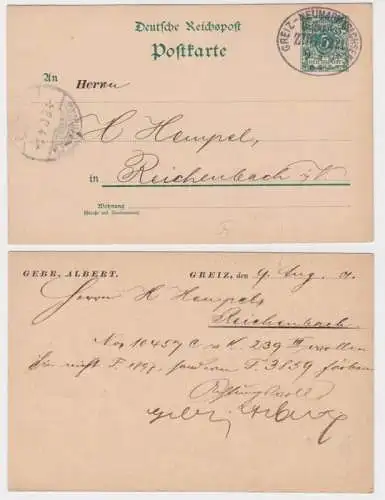 Deutsche Reichspost
GREIZ-NEUMARK
ZUG
Postkarte
An Herrn
H Hempel,
in Reichenbach i/V.
Wohnung
(Straße und Hausnummer)
GEBR. ALBERT. GREIZ, den 9. Aug. 01.
Herrn H Hempel,
Reichenbach
Nos 10457 C u K. 239 wollen
Sie nicht F. 1897, sondern F. 3859 färben
Achtungsvoll
Gebr. Albert